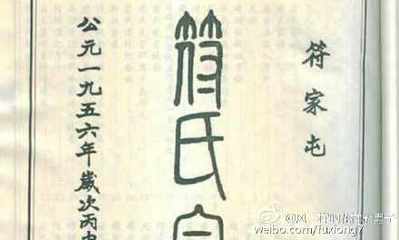 符家屯
符氏
公元一九五六年歲次丙申
weibo.com/fuxiong7